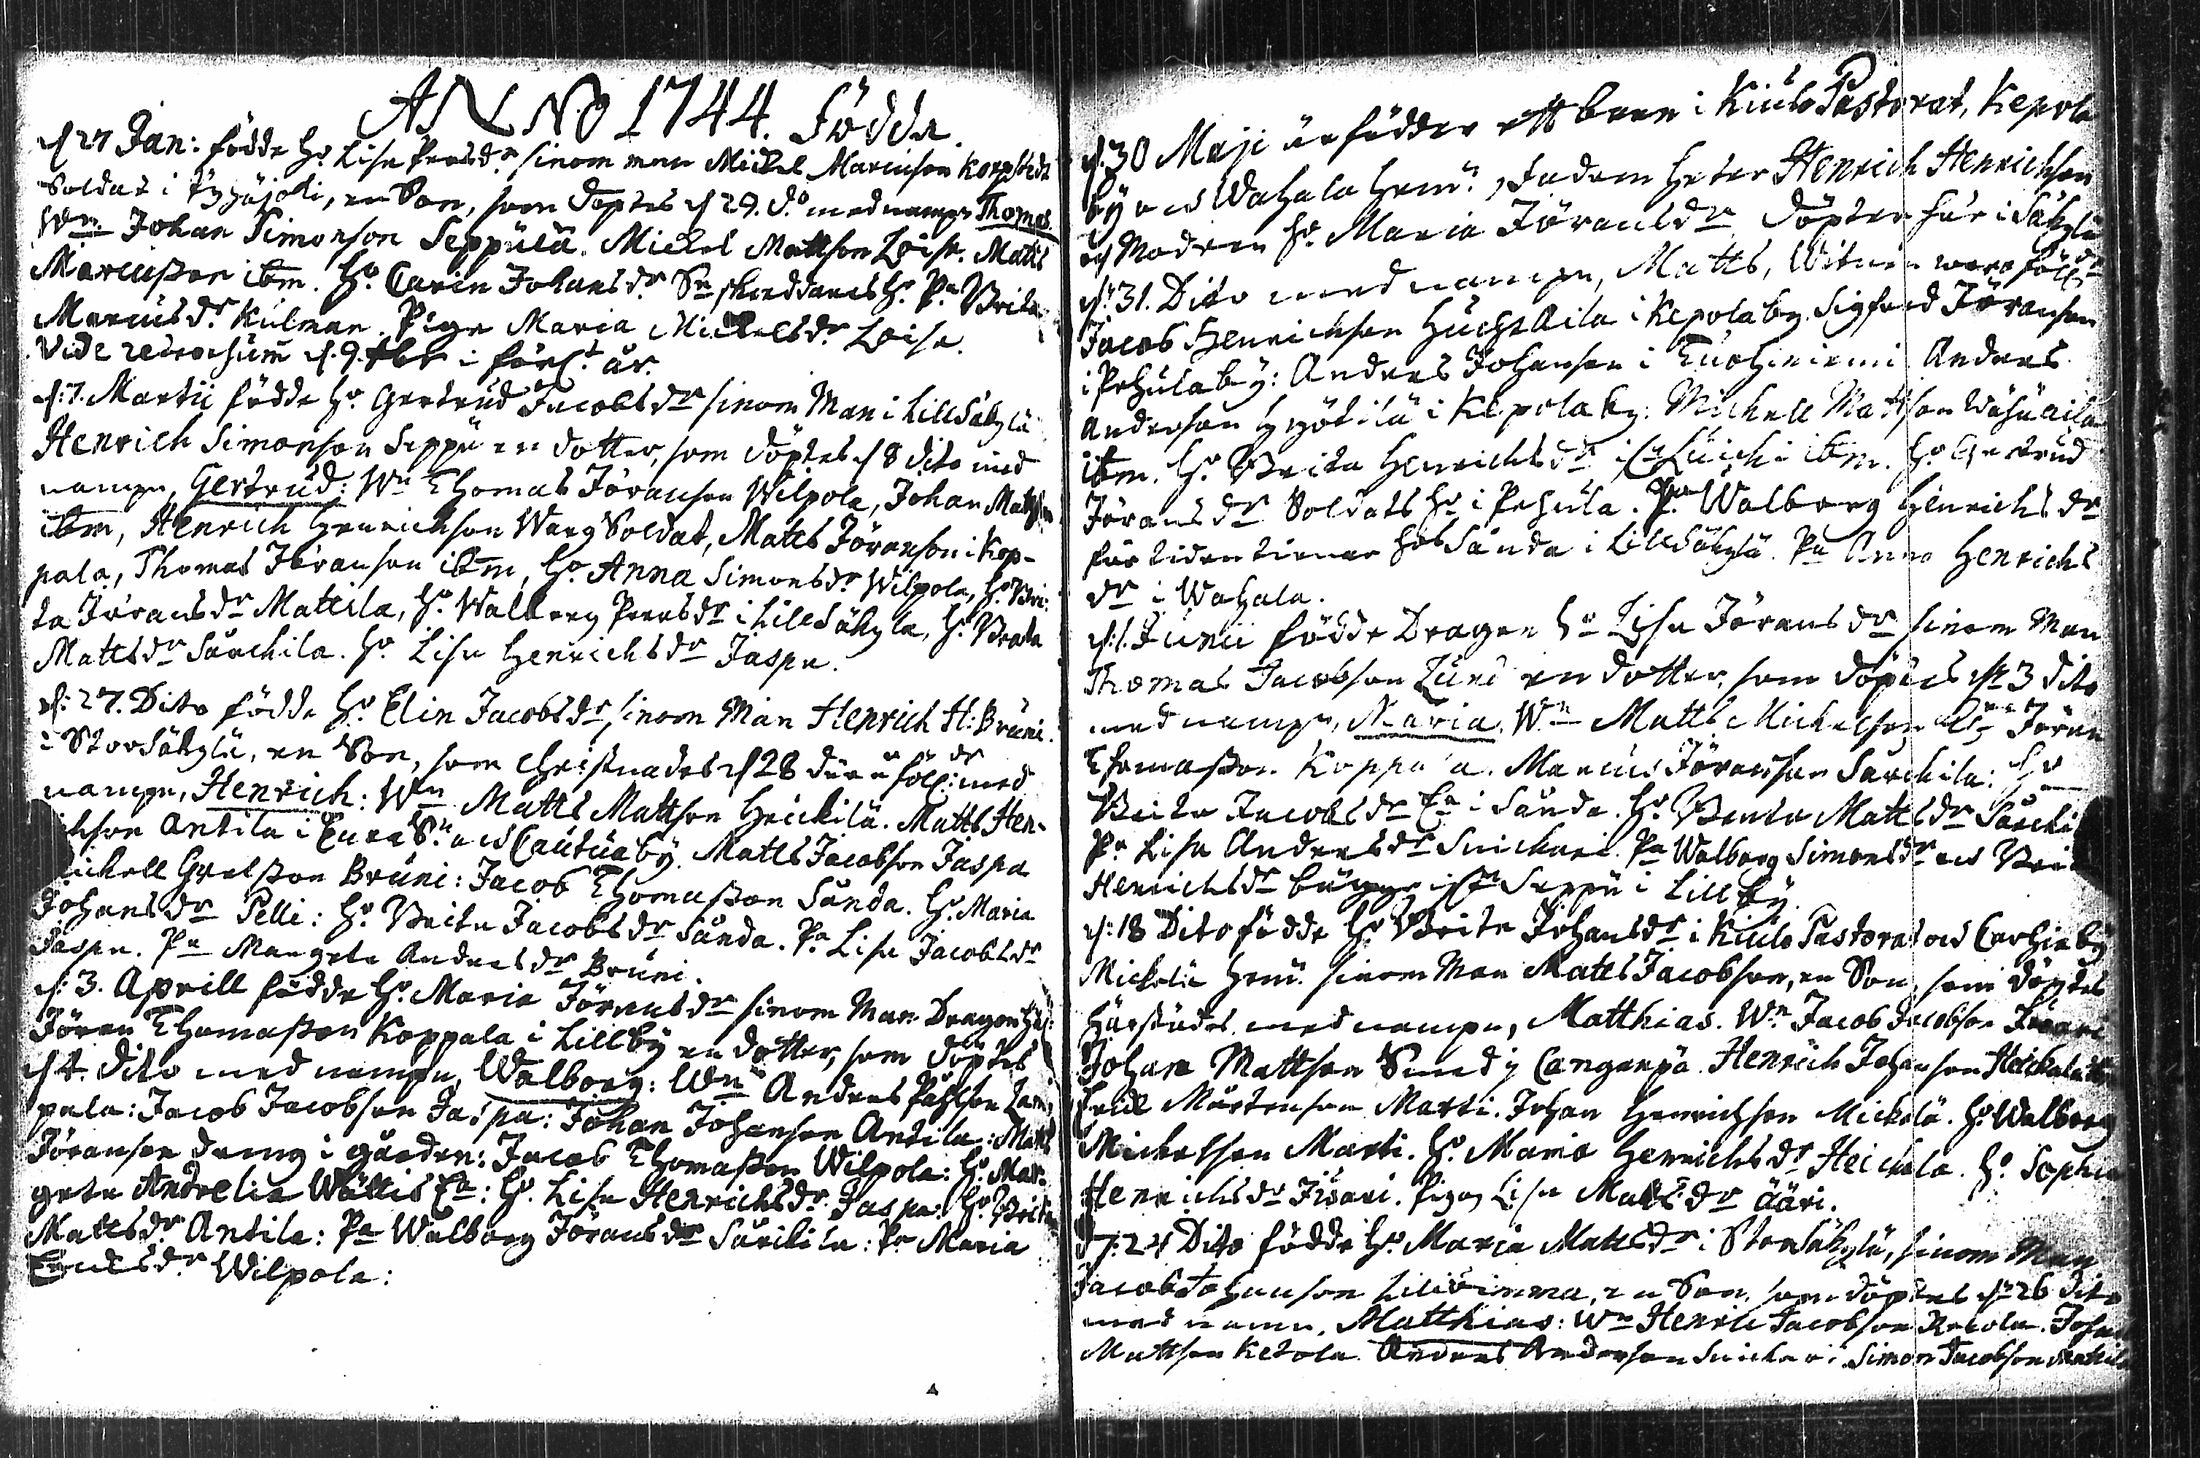 ANNO 1744. Födde.
d 27 Jan: födde H:o Lisa Persdr sinom man Mickel Marcuson
Soldat i, en Son, som döptes d 29. d:o med nampn Thomas.
Wn. Johan Simonson Seppälä. Mickel Mattson Loise. Matts
Marcusson ibm. H:o Carin Johansdr. Sn skreddares H:o Pa Brita
Marcusdr. Kulman. Pigan Maria Mickelsdr Loise.
Vide d. 9. i förl:t år.
d: 7. Martii födde H:o Gertrud Jacobsdr sinom Man i Lillsäkylä
Henrich Simonson Seppä en dotter, som döptes d 8 dito med
nampn, Gertrud: Wn Thomas Jöranson Wilpola, Johan Matsson
ibm, Henrich Henrichson Warg Soldat, Matts Jöranson i Kop-
pala, Thomas Jöranson ibm, H:o Anna Simonsdr Wilpola, H:o Bri-
ta Jöransdr Mattila, H:o Walborg Persdr i Lillsäkyla, H:o Breta
Mattsdr Särckila. H:o Lisa Henrichsdr Jaspa.
d: 27. Dito födde H:o Elin Jacobsdr, sinom Man Henrich H: Bruni.
i Storsäkylä, en Son, som Christnades d 28 där u föll: med
nampn, Henrich: Wn Matts Mattson Heickilä. Matts Hen-
ichson Antila i Eura Sn och Cautuaby. Matts Jacobson Jaspa
ickell Grelsson Bruni: Jacob Thomasson Sånda. H:o Maria
Johansdr Pelli: H:o Brita Jacobsdr Sånda. Pa Lisa Jacobsdr
Jaspa. Pa Margeta Andersdr Bruni.
d: 3. Aprill födde H:o Maria Jöransdr sinom Man Dragon
Jöran Thomasson Koppala i Lillby en dotter, som döptes
d 4. dito med nampn, Walborg: Wn Anders Påhlson Lam-
pala: Jacob Jacobson Jaspa: Johan Johanson Antila: Matts
Jöranson dräng i gården: Jacob Thomasson Wilpola: H:o Mar-
geta Andrelia Wållis Ea: H:o Lisa Henrichsdr Jaspa: H:o Brita
Mattsdr. Antila: Pa Walborg Jöransdr Särckila: Pa Maria
Wilpola:
d. 30 Maji är födder ett barn i Kiulo Pastorat, Kepola
by och Wahala Hem:n, fadern heter Henrich Henrichson
och Modren H:o Maria Jöransdr döpter här i Säkylä
d: 31. Dito med nampn, Matts, Witnen woro föll:de
Jacob Henrichson Huchtaila i Kepola by. Sigfred Jöranson
i Pehula by: Anders Johanson i Tuohiniemi Anders
Anderson Hyötilä i Kepola by: Michell Mattson
ibm. H:o Brita Henrichsdr i ibm. H:o Gertrud
Jöransdr Soldats H:o i Pehula. Pa Walborg Henrichsdr
för tiden tienar hos Sånda i Lillsäkylä. Pa Anna Henrichs
dr i Wahala.
d: 1. Junii födde Dragon H:o Lisa Jöransdr sinom Man
Thomas Jacobson Lund en dotter, som döptes d: 3 dito
med nampn, Maria. Wn Matts Mickelson Jöran
Thomasson Koppala. Marcus Jöranson Särckila: H:o
Brita Jacobsdr Ea i Sånda. H:o Breta Mattsdr Särcki
Pa Lisa Andersdr Snickari. Pa Walborg Simonsdr och Bri
Henrichsdr bägge i från Seppä i Lillby.
d: 18 Dito födde H:o Brita Johansdr i Kiulo Pastorat och Carhiaby
Mickolä Hem:n sinom Man Matts Jacobson, en Son, som döptes
härstädes med nampn, Matthias. Wn Jacob Jacobson
Johan Mattson Smed i Canganpä. Henrich Johanson Heickola
Mårtenson Marti. Johan Henrichson Mickolä. H:o Walborg
Mickelson Marti. H:o Maria Henrichsdr Heickola. H:o Sophia
Henrichsdr Jisari. Pigan Lisa Mattsdr Ääri.
d: 24 Dito födde H:o Maria Mattsdr i Storsäkylä, sinom Man
Jacob Johanson, en Son, som döptes d: 26 dito
med namn, Matthias: Wn Henric Jacobson. Johan
Mattson Ketola. Anders Anderson Snickari Simon Jacobson Mattila